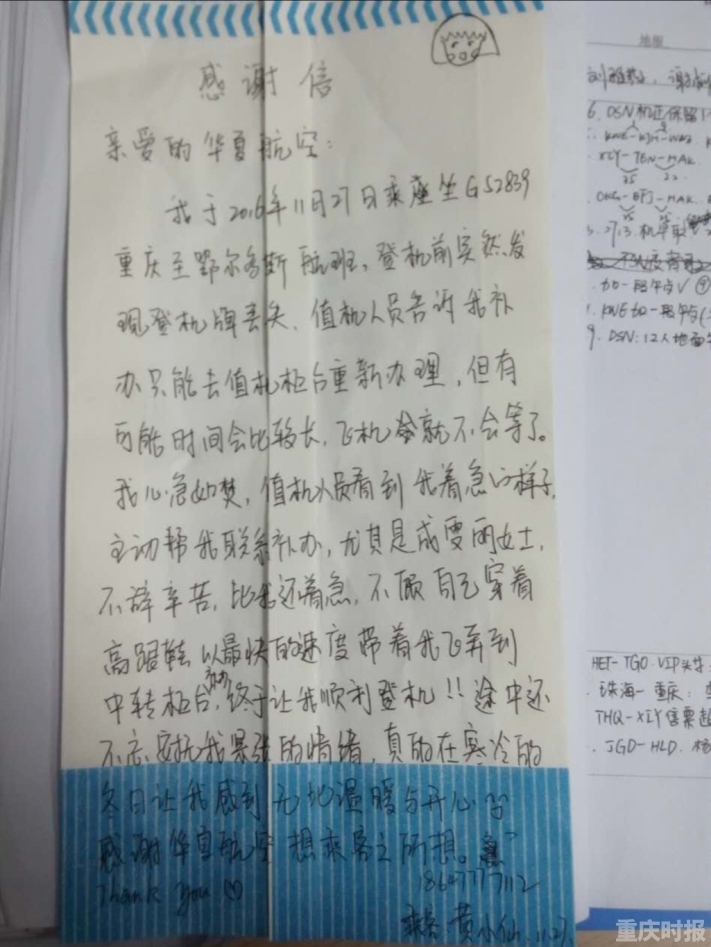 感谢信
亲爱的华夏航空：
我于2016年11月27日乘座坐G52839
重庆至鄂尔多斯航班，登机前突然发
现登机牌丢失，值机人员告诉我补
办只能去值机柜台重新办理，但有
可能时间会比较长，飞机就不会等了。
我心急如焚，值机人员看到我着急的样子，
主动帮我联系补办，尤其是成雯丽女士，
不辞辛苦，比我还着急，不顾自己穿着
高跟鞋以最快的速度带着我飞奔到
中转柜台，终于让我顺利登机!!途中还
不忘安抚我紧张的情绪，真的在寒冷的
冬日让我感到无比温暖与开心
感谢华夏航空想乘客之所想。
Thank You ♡
乘客：黄小仙 11.27
地服
6. DSN机正保留
XIY-TEN-HAK
25 22
加一段午点√④
9. DSN:12人地面
HET-TGO.VIP
珠海-重庆：
THQ-XIY
JGD-HLD.
重庆时报